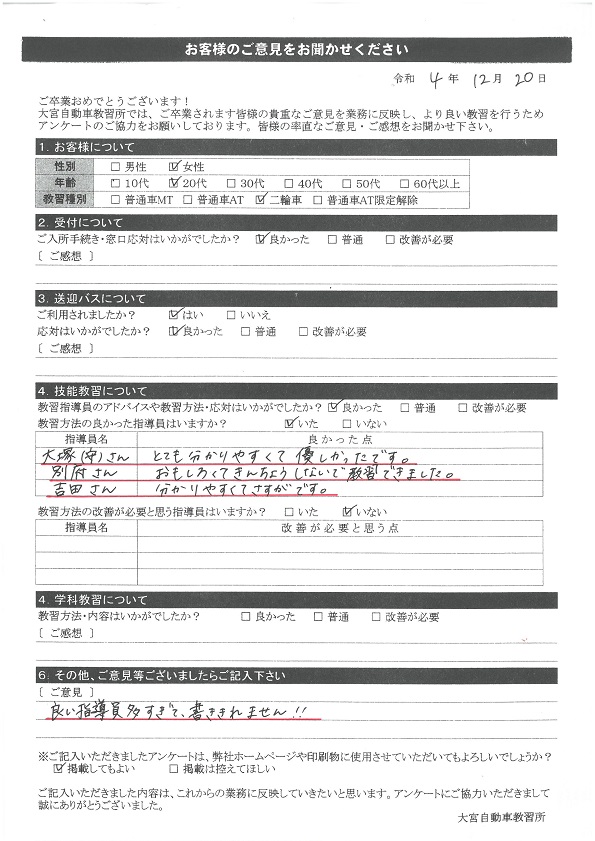 お客様のご意見をお聞かせください
令和 4 年 12 月 20 日
ご卒業おめでとうございます！
大宮自動車教習所では、ご卒業されます皆様の貴重なご意見を業務に反映し、より良い教習を行うため
アンケートのご協力をお願いしております。皆様の率直なご意見・ご感想をお聞かせ下さい。
1. お客様について
性別 □ 男性 ☑ 女性
年齢 □ 10代 ☑ 20代 □ 30代 □ 40代 □ 50代 □ 60代以上
教習種別 □ 普通車MT □ 普通車AT ☑ 二輪車 □ 普通車AT限定解除
2. 受付について
ご入所手続き・窓口応対はいかがでしたか？ ☑ 良かった □ 普通 □ 改善が必要
［ ご感想 ］
3. 送迎バスについて
ご利用されましたか？ ☑ はい □ いいえ
応対はいかがでしたか？ ☑ 良かった □ 普通 □ 改善が必要
［ ご感想 ］
4. 技能教習について
教習指導員のアドバイスや教習方法・応対はいかがでしたか？ ☑ 良かった □ 普通 □ 改善が必要
教習方法の良かった指導員はいますか？ ☑ いた □ いない
指導員名 良かった点
大塚(中)さん とても分かりやすくて優しかったです。
別府さん おもしろくてきんちょうしないで教習できました。
吉田さん 分かりやすくてさすがです。
教習方法の改善が必要と思う指導員はいますか？ □ いた ☑ いない
指導員名 改善が必要と思う点
4. 学科教習について
教習方法・内容はいかがでしたか？ □ 良かった □ 普通 □ 改善が必要
［ ご感想 ］
6. その他、ご意見等ございましたらご記入下さい
［ ご意見 ］
良い指導員多すぎて、書ききれません!!
※ご記入いただきましたアンケートは、弊社ホームページや印刷物に使用させていただいてもよろしいでしょうか？
☑ 掲載してもよい □ 掲載は控えてほしい
ご記入いただきました内容は、これからの業務に反映していきたいと思います。アンケートにご協力いただきまして
誠にありがとうございました。
大宮自動車教習所